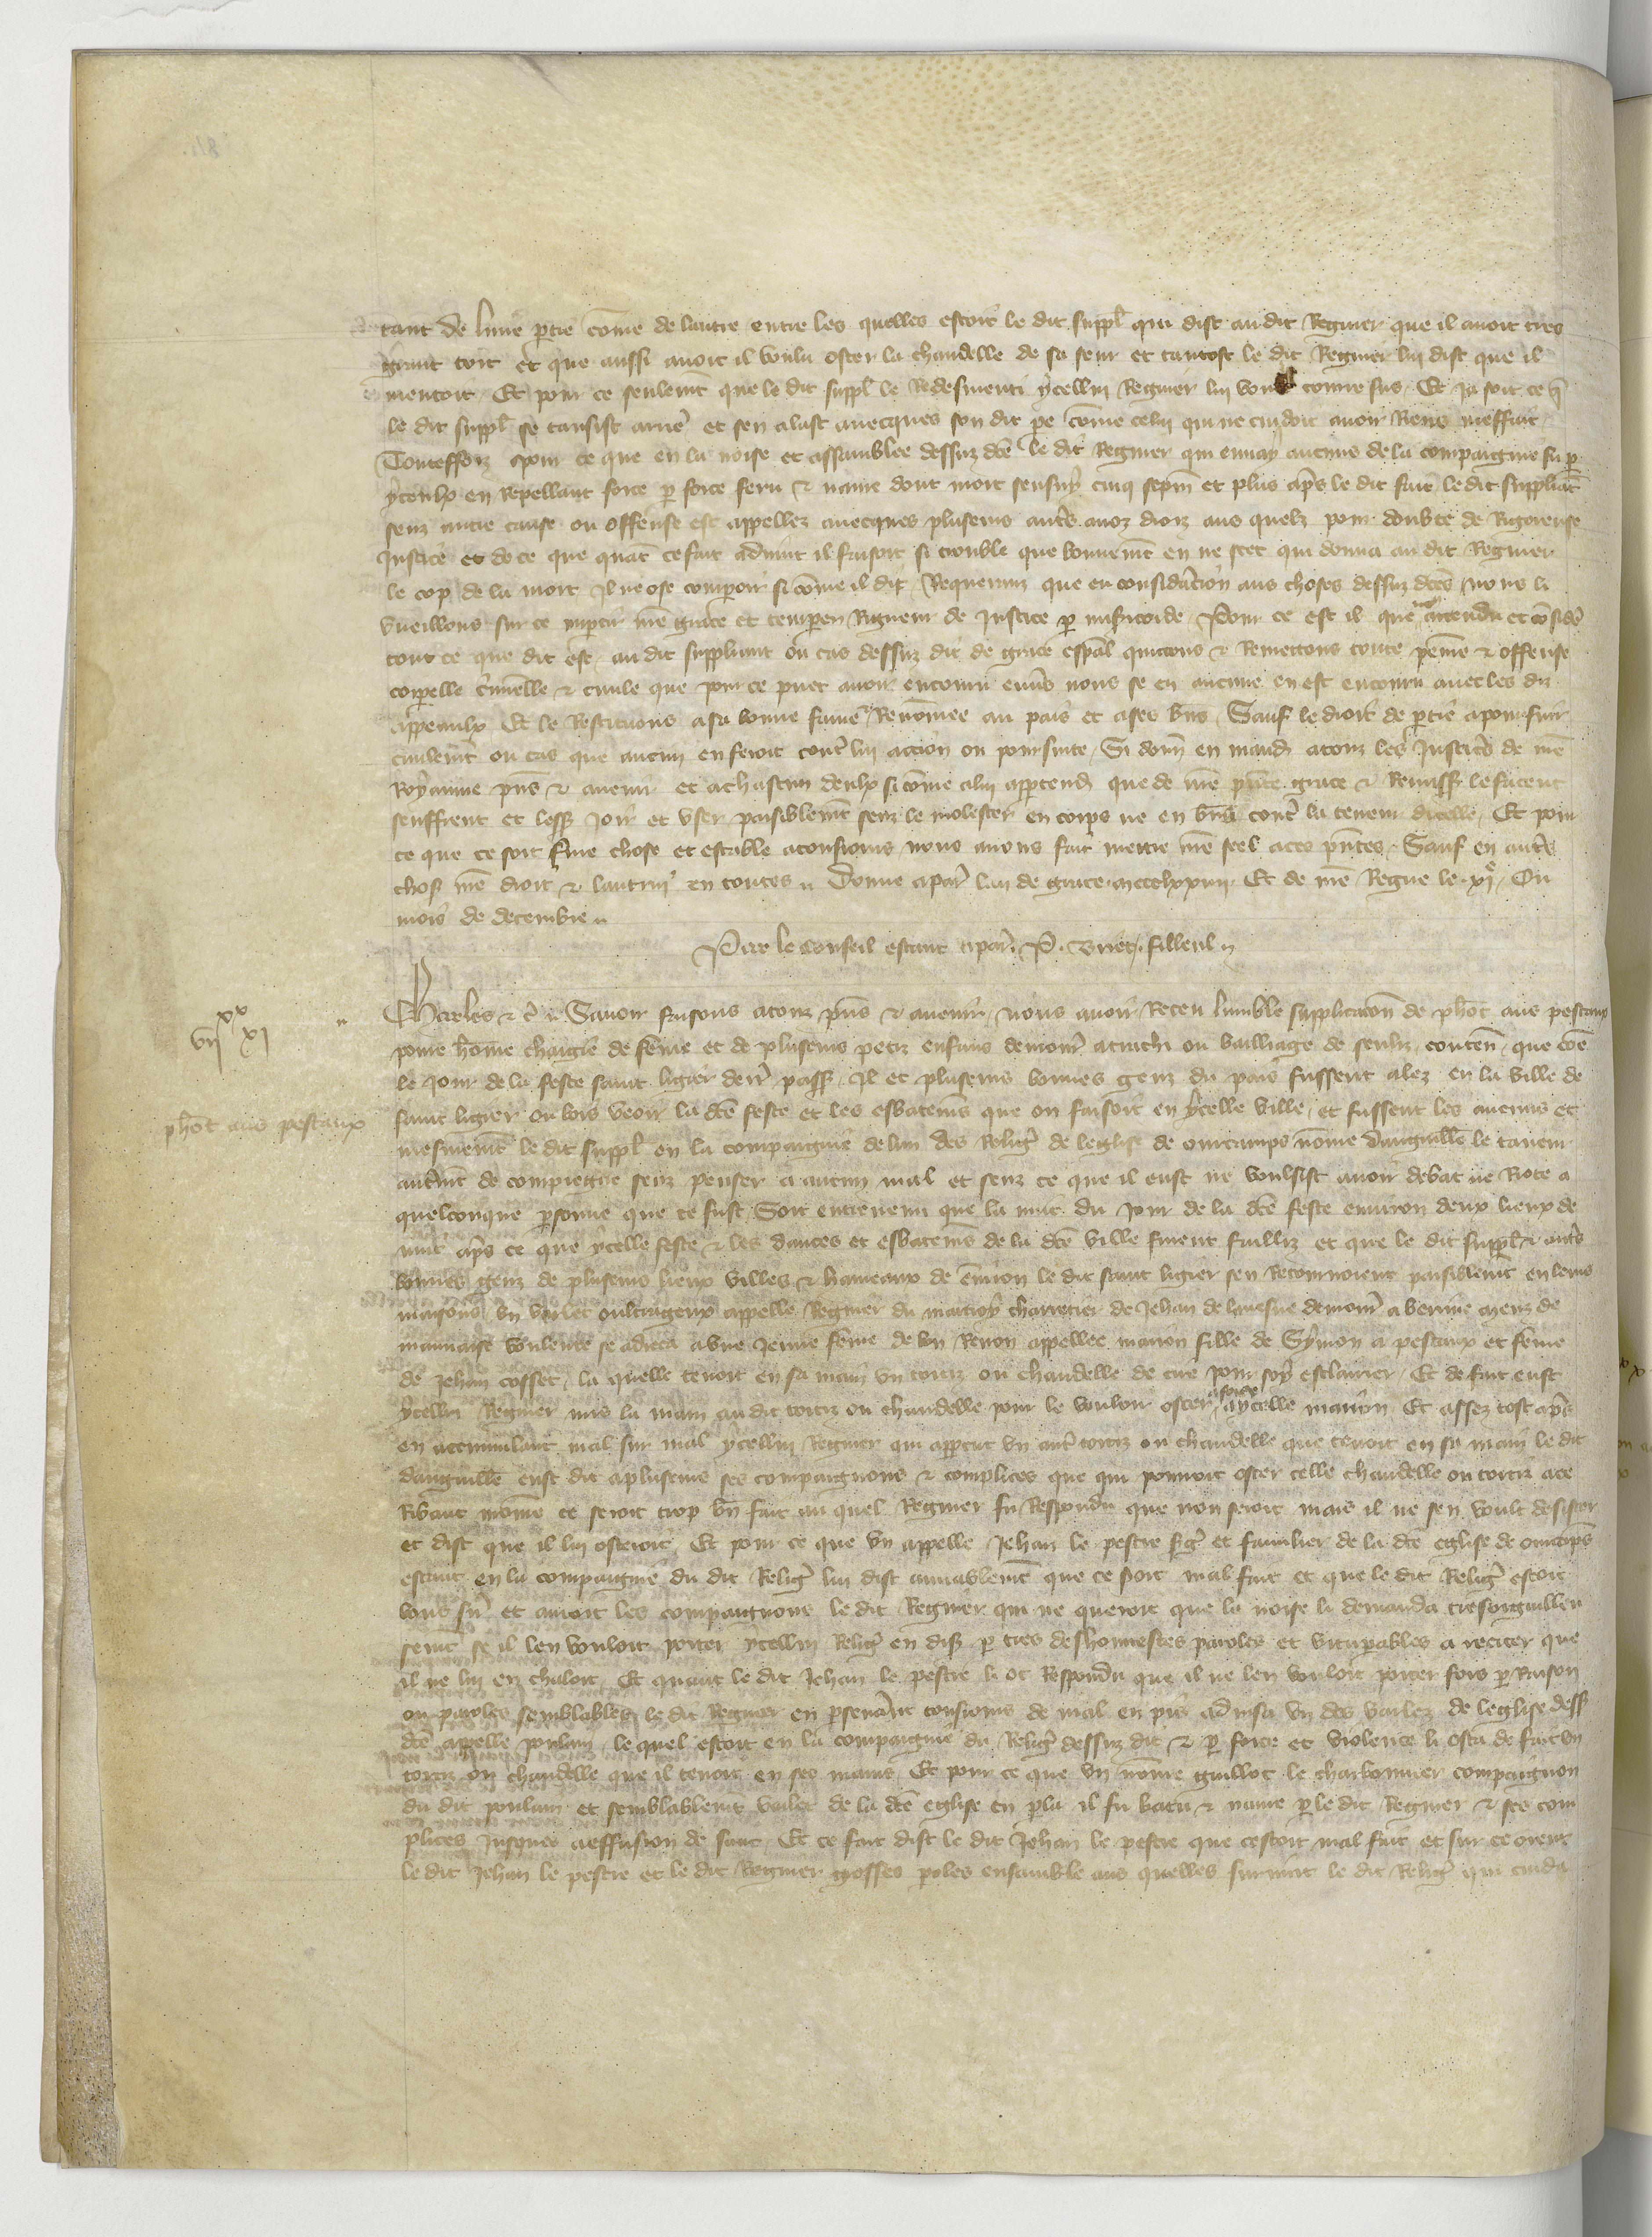 tant de lune ptie cōme de lautre entre les quelles estoit le dit suppl qui dist au dit Regnier que il auoit tres
grant tort et que aussi auoit il voulu oster la chandelle de sa seur et tantost le dit Regnier lui dist que il
mentoit Et pour ce seulemt que le dit suppl le Redesmenti ycellui Regnier lui courre sus Et Ja soit ce q̄
le dit suppl se tansist arrie et sen alast auecques son dit pe cōme celui qui ne cuidoit auoir Riens meffait
Touteffoiz pour ce que en la noise et assamblee dessuz dce le dit Regnier qui aucuns de la compaignie fu p
yceulx en Repellant force p force feru & naure dont mort sensuy cinq sepm et plus aps le dit fait le dit suppliāt
senz autre cause ou offense est appellez auecques pluseurs autrs anoz droiz aus quelz pour doubte de Rigoreuse
Justice et de ce que quāt ce fait aduint il faisoit si trouble que bonnemt en ne scet qui donna au dit Regnier
le cop de la mort Il ne ose comparoir si cōme il dit Requerant que en consideracion aus choses dessuz dces nous li
vueillons sur ce impartir nre grace et temperer Rigueur de Justice p misericorde Pour ce est il que nous attendu et cōsidere
tout ce que dit est au dit suppliant ou cas dessuz dit de grace espal quittons & Remettons toute peine & offense
corpelle criminelle & ciuile que pour ce puet auoir encouru enuers nous se en aucune en est encouru auec les diz
appeaulx Et le Restituons a sa bonne fame & Renōmee au pais et a ses biens Sauf le droit de partie a poursuir
ciuilemt ou cas que aucun en feroit contre lui accion ou poursuite Si donn en mand a touz les Justiciers de nre
Royaume pns & auenir et a chascun deulx si cōme a lui appartendra que de nre pnte grace & Remiss le facent
seuffrent et lessent Joir et vser paisiblemt senz le molester en corps ne en biens contre la teneur dicelle Et pour
ce que ce soit ferme chose et estable a tousiours nous auons fait mettre nre seel a ces pntes Sauf en autres
choses nre droit & lautrui en toutes Donne a Paris lan de grace mccclxxiiii Et de nre Regne le xie Ou
mois de decembre
Par le conseil estant a Paris P. Briet filleul
viixx xi
Charles & c Sauoir faisons a touz pns & auenir nous auoir Receu lumble supplicacon de phot aus pestaux
poure hōme chargie de fēme et de pluseurs petiz enfans demourant atrichi ou bailliage de senliz conten que cōe
le Jour de la feste saint ligier derr passe Il et pluseurs bonnes genz du pais fussent alez en la ville de
phot aus pestaux
saint ligier ou bois veoir la dce feste et les esbatemens que on faisoit en ycelle ville et fussent les aucuns et
mesmemt le dit suppl en la compaignie de lun des Religieux de leglise de ourcamps nōme danguille le tauernier
autremt de compiegne senz penser a aucun mal et senz ce que il eust ne voulsist auoir debat ne Rote a
quelconque psonne que ce fust Soit entreuenu que la nuit du Jour de la dce feste enuiron deux lieux de
nuit aps ce que ycelle feste & les dances et esbatemens de la dce ville furent failliz et que le dit suppl & autrs
bonnes genz de pluseurs lieux villes & hameaux de enuiron le dit saint ligier sen Retournoient paisiblemt en leurs
maisons vn varlet oultrageux appelle Regnier du martroy charretier de Jehan de lauesne demour a berine menz de
mauuaise voulente se adreca a vne Jeune fēme de bon Renon appellee marion fille de Symon a pestaux et fēme
de Jehan cosset la quelle tenoit en sa main vn tortiz ou chandelle de cire pour soy esclairier Et de fait eust
ycellui Regnier mis la main au dit tortiz ou chandelle pour le vouloir oster a force a ycelle marion Et assez tost aps
en acumulant mal sur mal ycellui Regnier qui apperceut vn autre tortiz ou chandelle que tenoit en sa main le dit
danguille eust dit a pluseurs ses compaignons & complices que qui pourroit oster celle chandelle ou tortiz a ce
Ribaut moine ce seroit trop bn fait au quel Regnier fu Respondu que non feroit mais il ne sen voult desister
et dist que il lui osteroit Et pour ce que vn appelle Jehan le pestre serg et familier de la dce eglise de ourcaps
estant en la compaignie du dit Religieux lui dist amiablemt que ce soit mal fait et que le dit Religieux estoit
bons sire et amoit les compaignons le dit Regnier qui ne queroit que la noise li demanda tres orguilleu
semt se il len vouloit porter ycellui Religieux en disant p tres deshonnestes paroles et vituperables a reciter que
il ne lui en chaloit Et quant le dit Jehan le pestre li ot Respondu que il ne len vouloit porter fors p Raison
ou paroles semblables le dit Regnier en perseuerant tousiours de mal en pis aduisa vn des varlez de leglise dess
dce appelle poulain le quel estoit en la compaignie du Religieux dessuz dit & p force et violence li osta de fait vn
tortiz ou chandelle que il tenoit en ses mains Et pour ce que vn nōme guillot le charbonnier compaignon
du dit poulain et semblablemt varlet de la dce eglise en parla il fu batu & naure p le dit Regnier & ses com
plices Jusques a effusion de sanc Et ce fait dist le dit Jehan le pestre que cestoit mal fait et sur ce orent
le dit Jehan le pestre et le dit Regnier grosses paroles ensamble aus quelles suruint le dit Religieux qui cuida